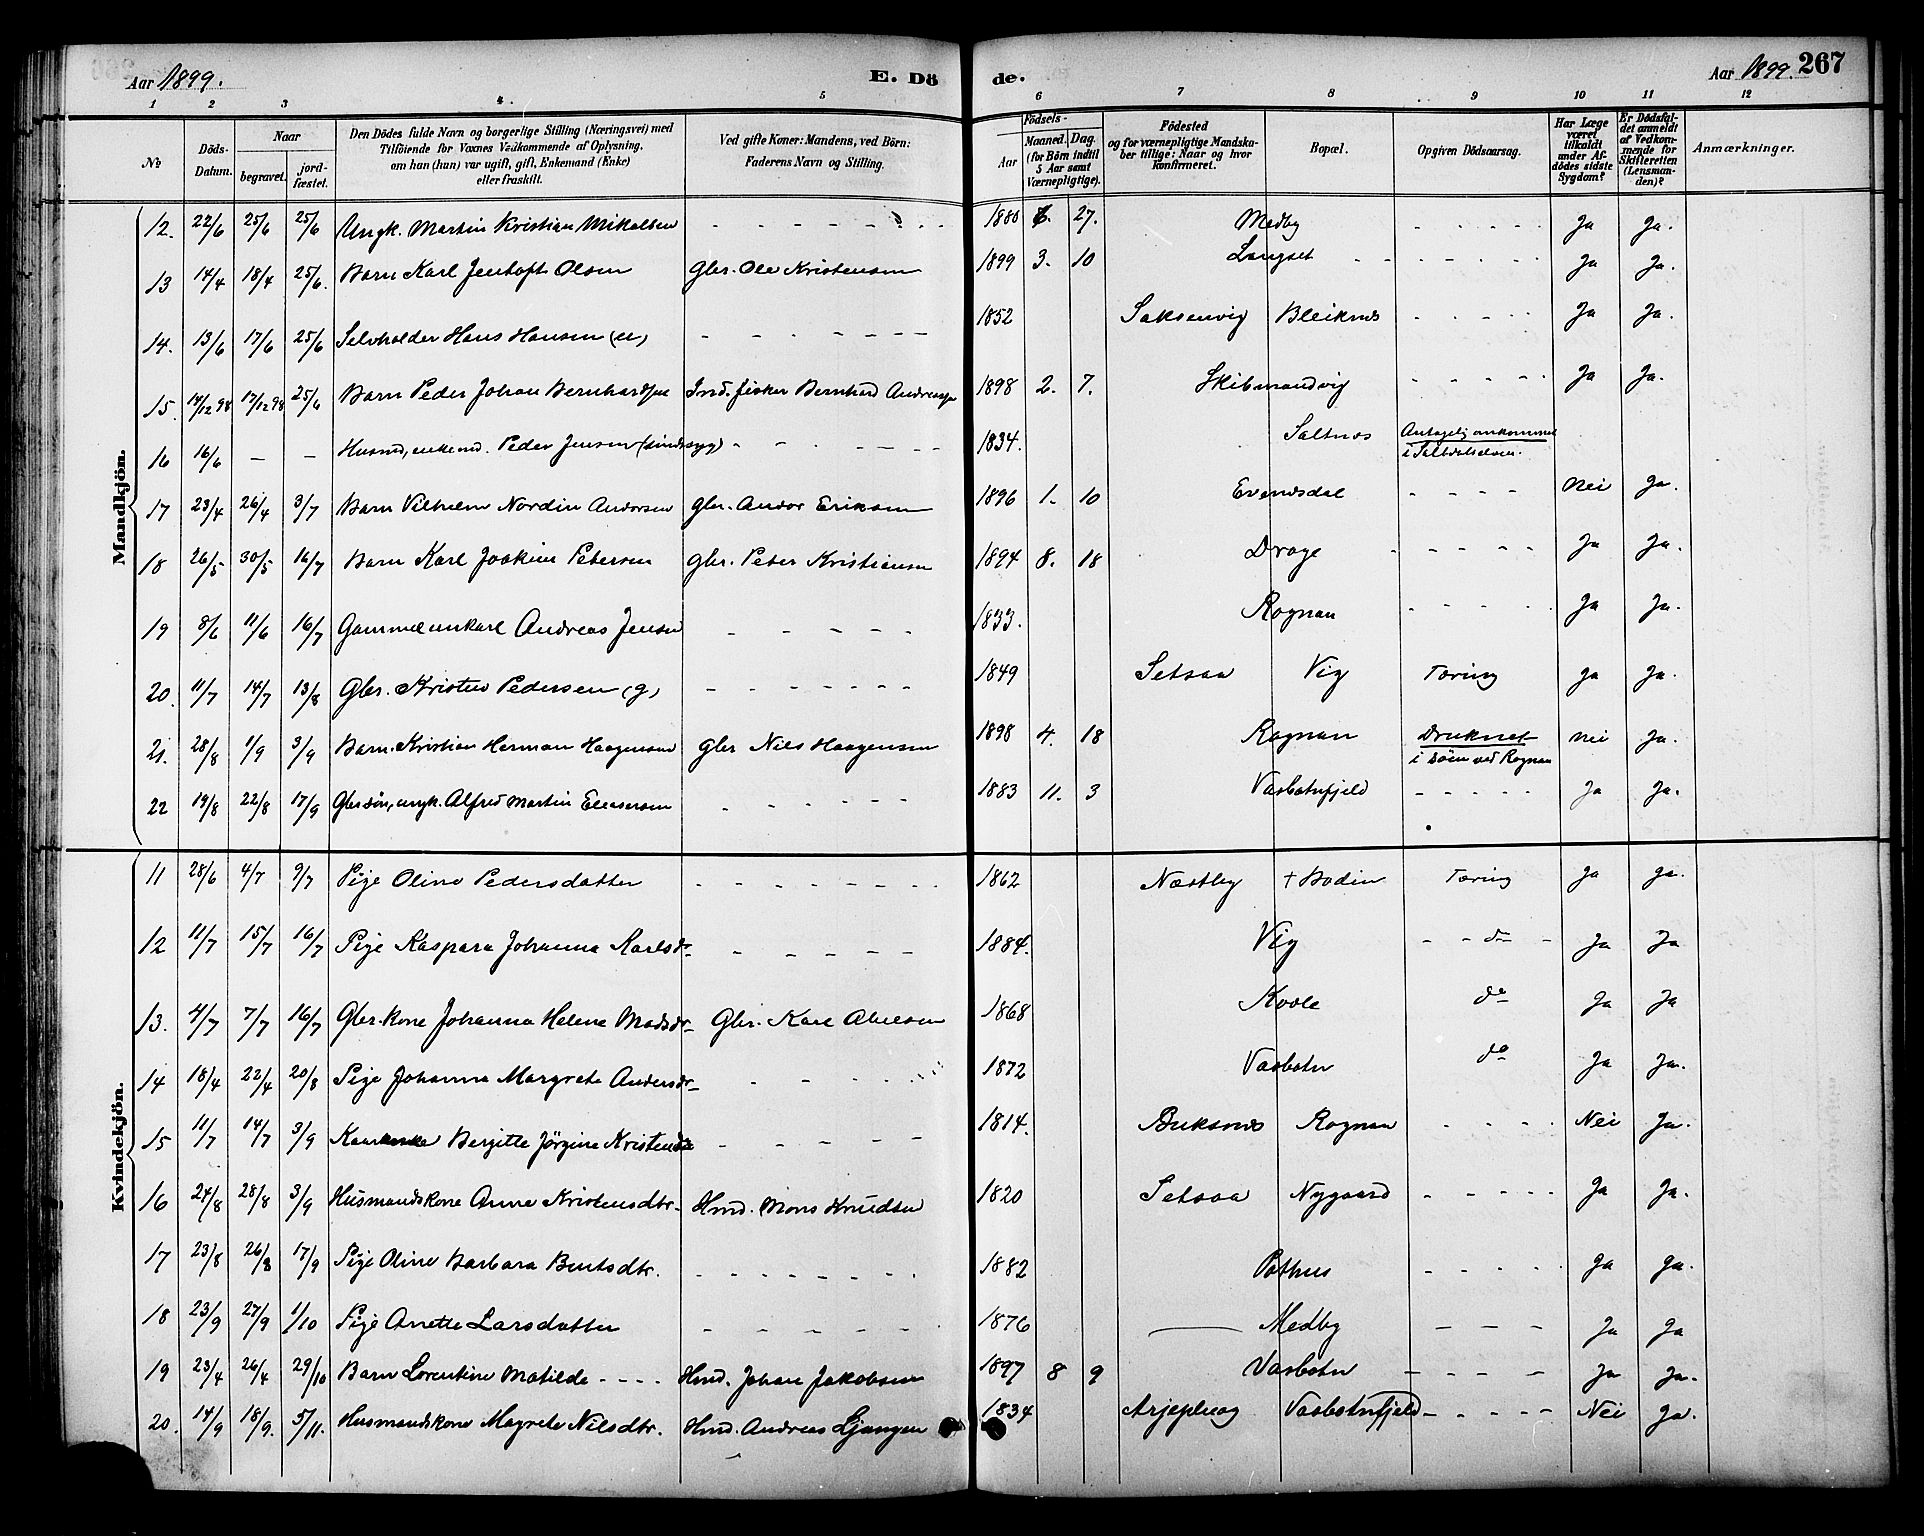 Aar 1899. E. Dö de. Aar 1899. 267
1 2 3 4. 5 6 7 8 9 10 11 12
№ Döds-Datum. Naar begravet. jord-fæstet. Den Dödes fulde Navn og borgerlige Stilling (Næringsvei) med Tilföiende for Voxnes Vedkommende af Oplysning, om han (hun) var ugift, gift, Enkemand (Enke) eller fraskilt. Ved gifte Koner: Mandens, ved Börn: Faderens Navn og Stilling. Födsels- Aar Maaned. Dag. (for Börn indtil 5 Aar samt Værnepligtige). Födested og for værnepligtige Mandskaber tillige: Naar og hvor konfirmeret. Bopæl. Opgiven Dödsaarsag. Har Læge været tilkaldt under Afdödes sidste Sygdom? Er Dödsfaldet anmeldt af Vedkommende for Skifteretten (Lensmanden)? Anmærkninger.
Mandkjön.
12. 22/6 25/6 25/6 Ungk. Martin Kristian Mikalsen - - - - - 1880 27. Medby - - - - - Ja Ja.
13 14/4 18/4 25/6. Barn Karl Jentoft Olsen Gbr. Ole Kristensen 1899 3. 10 Langset - - - - - Ja Ja.
14. 13/6 17/6 25/6 Selvholder Hans Hansen (u) - - - - - 1852 Saksenvig Bleiknes - - - - Ja Ja.
15. 14/12 98 17/12 98 25/6 Barn Peder Johan Bernhardsen Ind. fisker Bernhard Andreassen 1898 2. 7. Skibmandvig - - - - - Ja Ja.
16 16/6 - - Husmd, enkemd. Peder Jensen (sindssyg) - - - - - 1834. Saltnes Antagelig omkommet i Saltdalselven.
17 23/4 26/4 3/7 Barn Vilhelm Nordin Andorsen Gbr. Andor Eriksen 1896 1. 10 Evensdal - - - - Nei Ja.
18 26/5 30/5 16/7 Barn Karl Joakim Petersen Gbr. Peter Kristiansen 1894 8. 18 Drage - - - - - Ja Ja.
19 8/6 11/6 16/7 Gammel ungkarl Andreas Jensen - - - - - 1833. Rognan - - - - - Ja Ja.
20. 11/7 14/7 13/8 Gbr. Kristen Pedersen (g) - - - - - - 1849 Setsaa Vig Tæring Ja Ja.
21. 28/8 1/9 3/9 Barn. Kristian Herman Haagensen Gbr Nils Haagensen 1898 4. 18 Rognan Druknet i söen ved Rognan Nei Ja.
22 19/8 22/8 17/9 Gbr.sön, ungk. Alfred Martin Eliasersen - - - - - 1883 11. 3 Vasbotnfjeld - - - - - Ja Ja.
Kvindekjön.
11 28/6 4/7 9/7 Pige Oline Pedersdatter - - - - - - - 1862 Næstby + Bodin Tæring Ja Ja.
12 11/7 15/7 16/7 Pige Kaspara Johanna Karlsdr - - - - - 1884. Vig - - do - Ja Ja
13. 4/7 7/7 16/7 Gbr. kone Johanna Helene Madsdr. Gbr. Karl Abelsen 1868 Kvæle do Ja Ja
14 18/4 22/4 20/8 Pige Johanna Margrete Andersdr. - - - - 1872 Vasbotn do Ja Ja.
15 11/7 14/7 3/9 Bergitte Jörgine Kristensdr - - - - - 1814. Buksnes Rognan - - - - Nei Ja.
16 24/8 28/8 3/9 Husmandskone Anne Kristensdtr. Hmd. Mons Knudsen 1820 Setsaa Nygaard - - - - - Ja Ja.
17 23/8 26/8 17/9 Pige Oline Barbara Bentsdtr. - - - - - - - 1882 Pothus - - - - - Ja Ja.
18 23/9 27/9 1/10 Pige Anette Larsdatter - - - - - - 1876 — Medby - - - Ja Ja
19 23/4 26/4 29/10 Barn Lorentine Matilde - - - - Hmd. Johan Jakobsen 1897 8 9 Vasbotn - - - - Ja Ja.
20. 14/9 18/9. 5/11. Husmandskone Magrete Nilsdtr. Hmd. Andreas Ljungen 1834 Arjepluog Vasbotnfjeld - - - - Nei Ja.